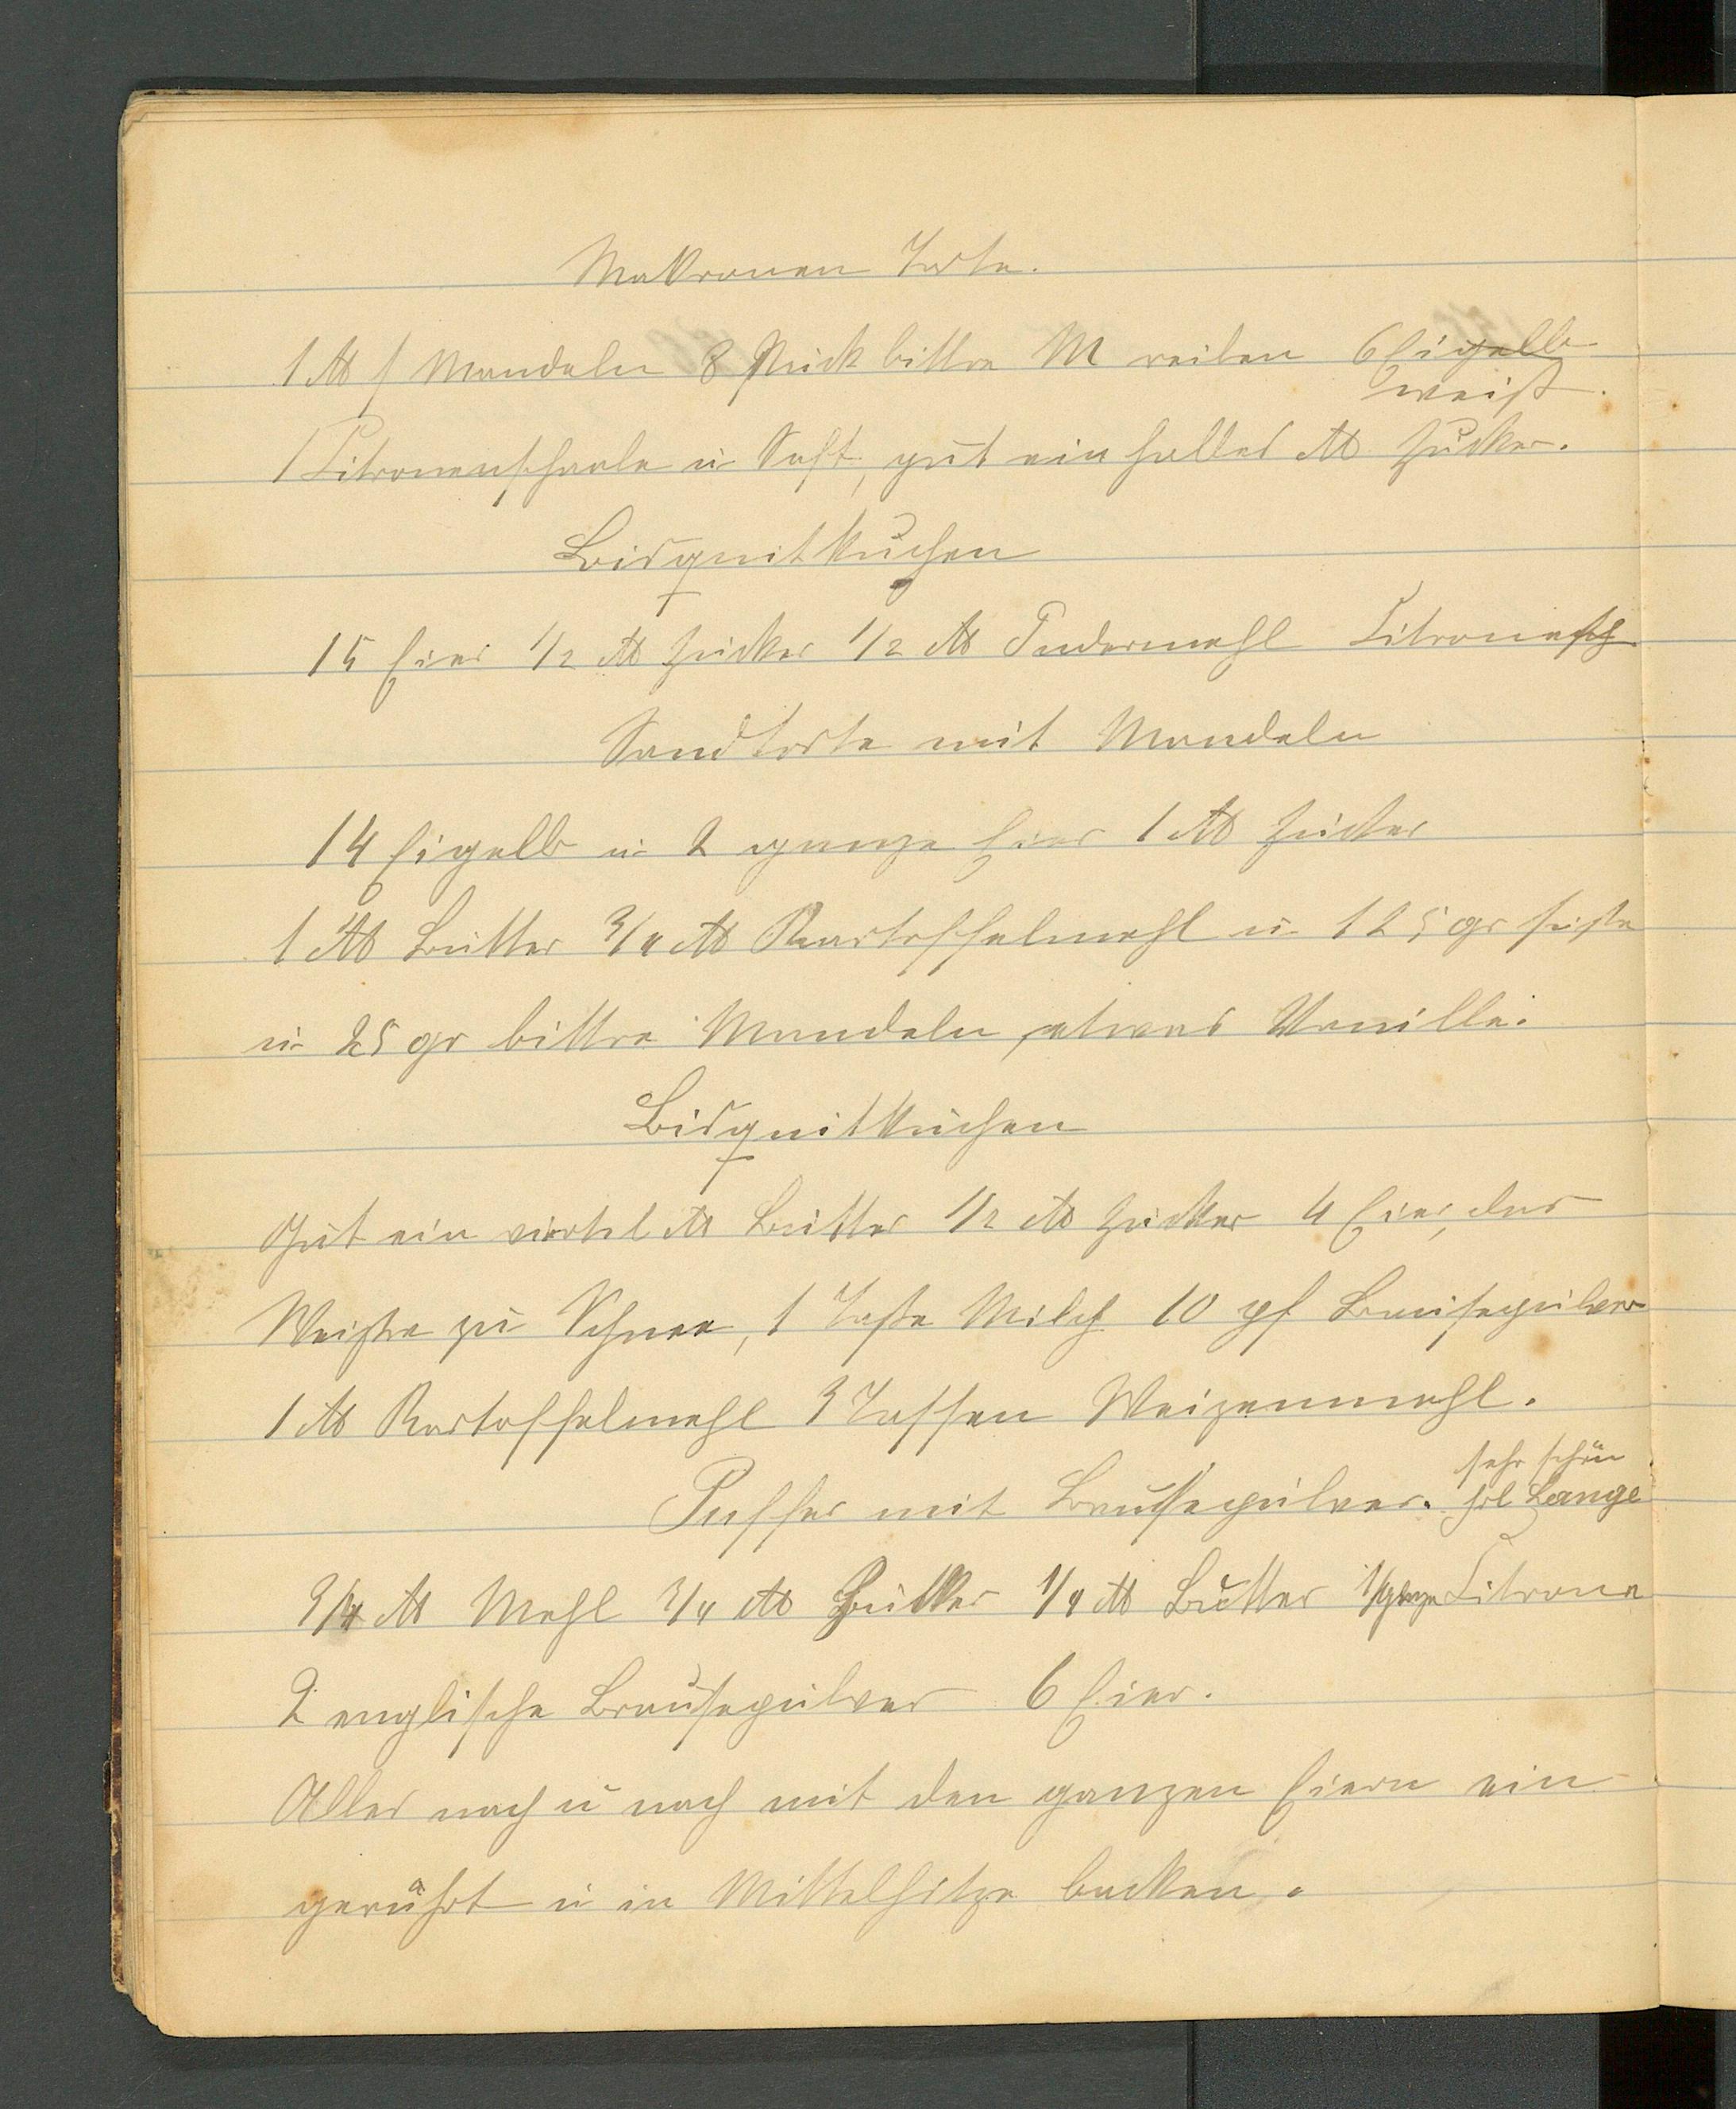 Makronen Torte.
1 ℔ s Mandeln 8 Stück bittre M reiben 6 Eigelb
weiß.
1 Citronenschaale u Saft, gut ein halbes ℔ Zucker.
Bisquitkuchen
15 Eier 1/2 ℔ Zucker 1/2 ℔ Pudermehl Citronensch
Sandtorte mit Mandeln
14 Eigelb u 2 ganze Eier 1 ℔ Zucker
1 ℔ Butter 3/4 ℔ Kartoffelmehl u 125 gr süße
u 25 gr bittre Mandeln, etwas Vanille.
Bisquitkuchen
Gut ein viertel ℔ Butter 1/2 ℔ Zucker 4 Eier, das
Weiße zu Schnee, 1 Taße Milch 10 pf Brausepulver
1 ℔ Kartoffelmehl 3 Tassen Weizenmehl.
sehr schön
Puffer mit Brausepulver. frl Lange
3/4 ℔ Mehl 1/4 ℔ Zucker 1/4 ℔ Butter 1 ganze Citrone
2 englische Brausepulver 6 Eier.
Alles nach u nach mit den ganzen Eiern ein
gerührt u in Mittelhitze backen.